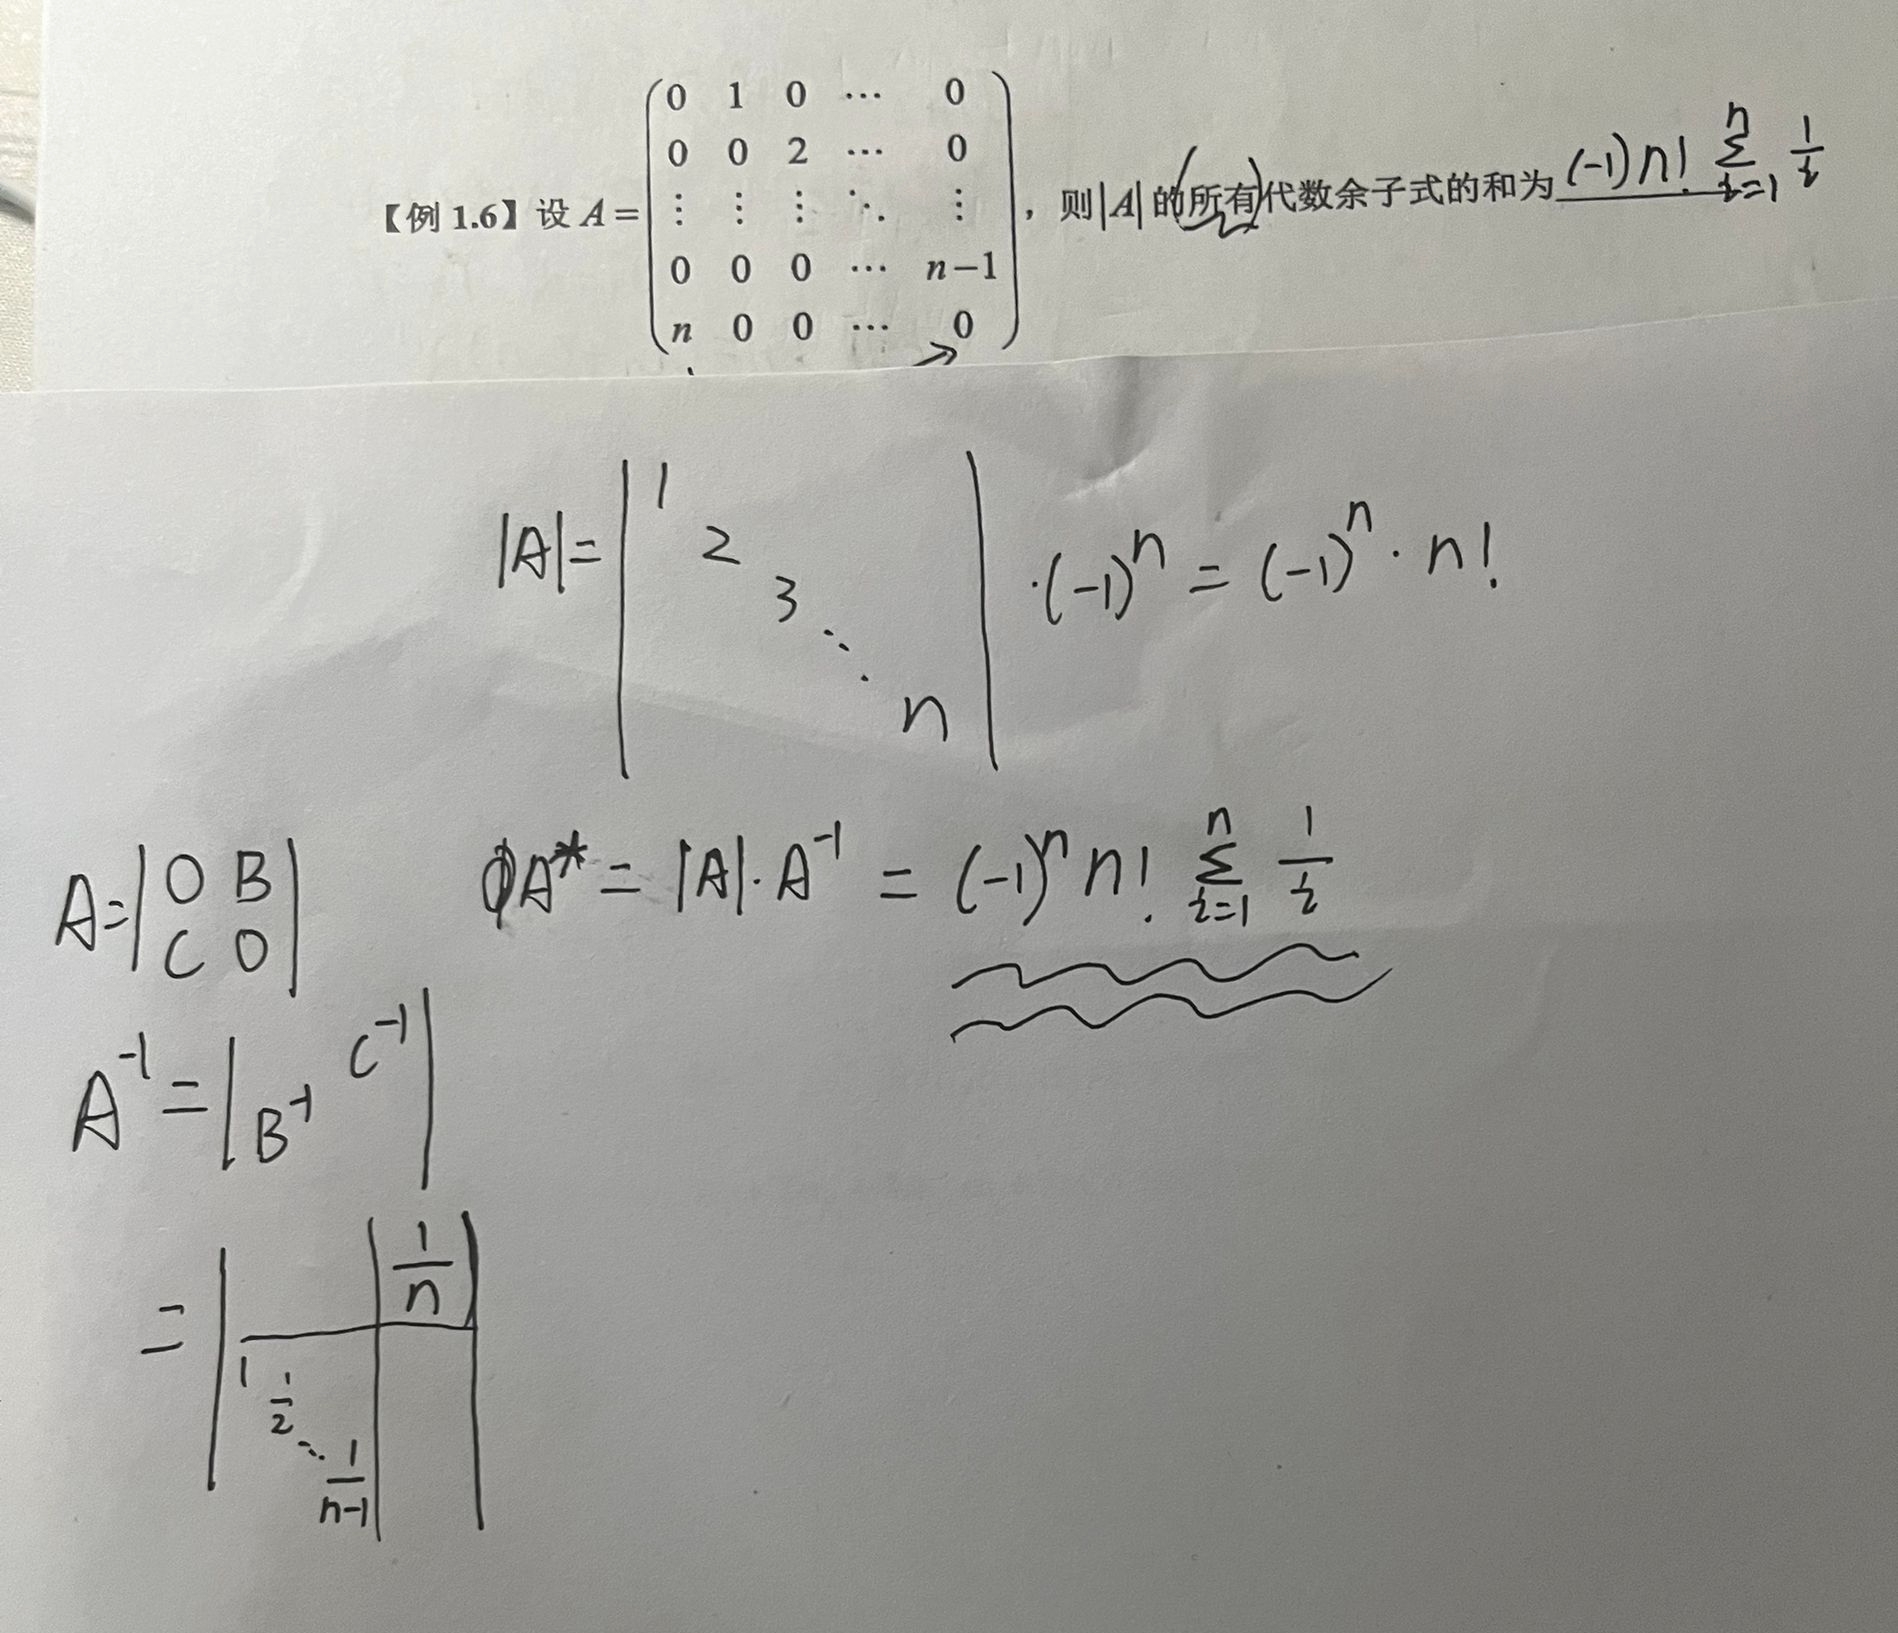 【例 1.6】设 A = ( 0 1 0 ⋯ 0
0 0 2 ⋯ 0
⋮ ⋮ ⋮ ⋱ ⋮
0 0 0 ⋯ n−1
n 0 0 ⋯ 0 ) ，则|A|的(所有)代数余子式的和为 (-1) n! Σ_{i=1}^{n} 1/i
|A| = | 1 2 3 ⋱ n | ·(-1)^n = (-1)^n · n!
A = | O B
C O |
A* = |A|·A^{-1} = (-1)^n n! Σ_{i=1}^{n} 1/i
A^{-1} = | C^{-1}
B^{-1} |
= | 1/n
1 1/2 ⋱ 1/(n-1) |